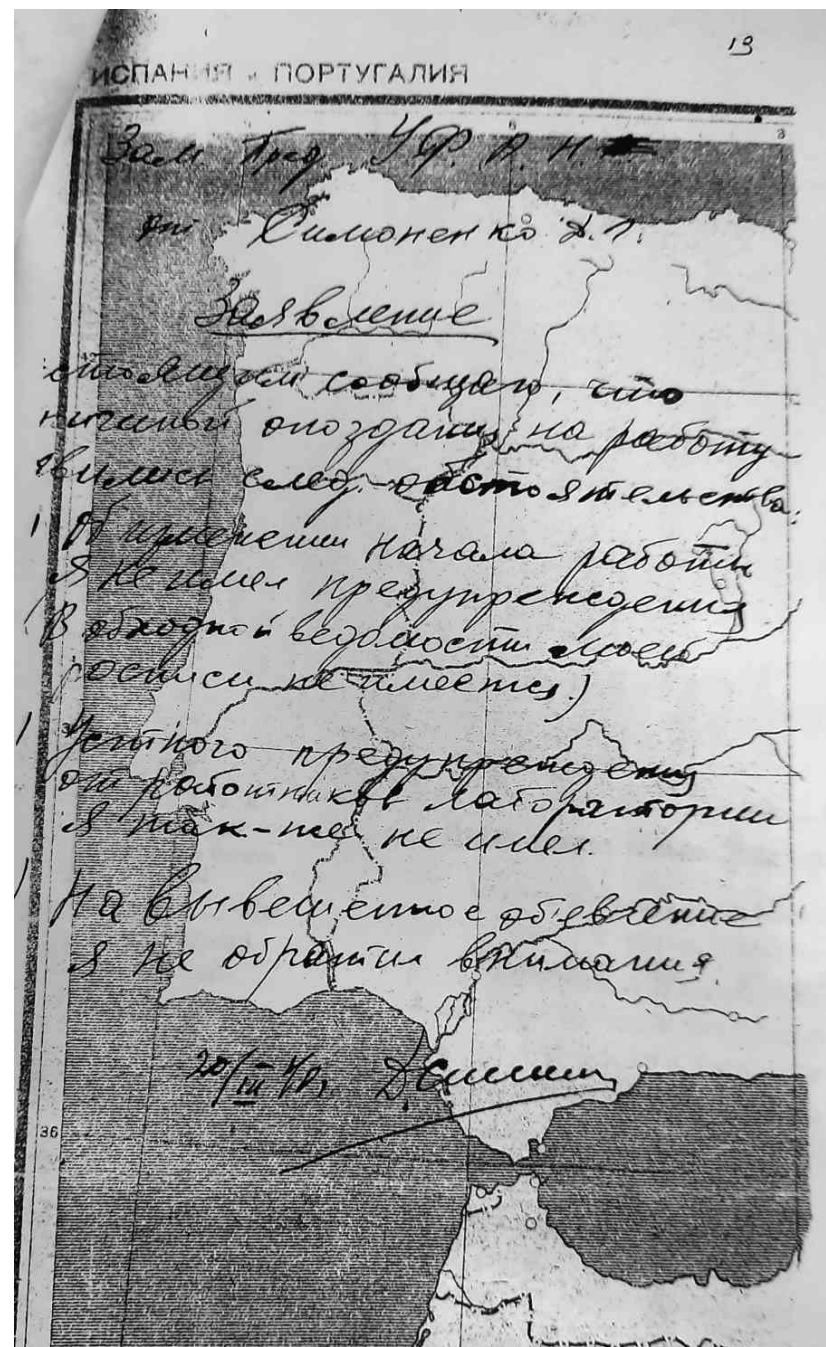 19
ИСПАНИЯ и ПОРТУГАЛИЯ
8
Зам. Пред. У.Ф.А.Н.
от Симоненко Д.Л.
Заявление
стоящим сообщаю, что
ричиной опоздания на работу
вились след. обстоятельства:
Об изменении начала работы
я не имел предупреждения
(В обходной ведомости моей
росписи не имеется.)
Устного предупреждения
от работников лаборатории
я так-же не имел.
На вывешенное объевление
я не обратил внимания
20/III
36